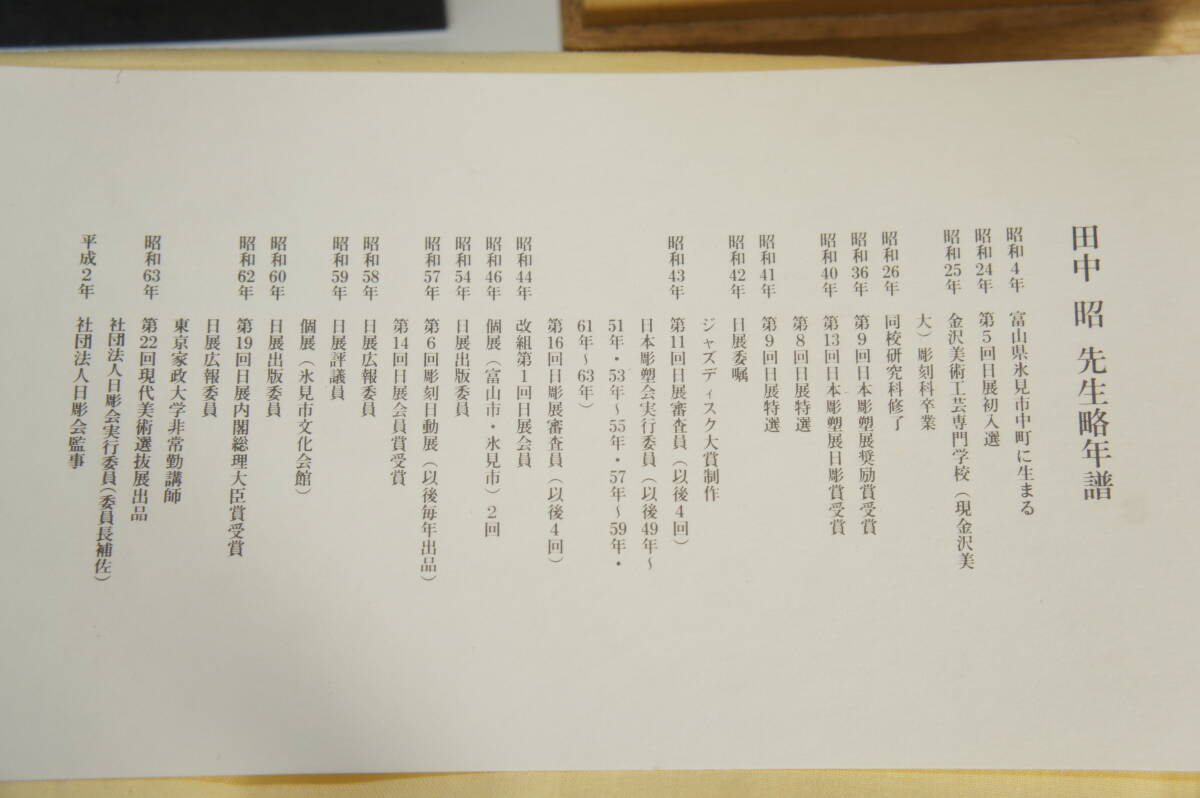 田中 昭 先生略年譜
昭和4年 富山県氷見市中町に生まる
昭和24年 第5回日展初入選
昭和25年 金沢美術工芸専門学校（現金沢美
大）彫刻科卒業
昭和26年 同校研究科修了
昭和36年 第9回日本彫塑展奨励賞受賞
昭和40年 第13回日本彫塑展日彫賞受賞
第8回日展特選
昭和41年 第9回日展特選
昭和42年 日展委嘱
ジャズディスク大賞制作
昭和43年 第11回日展審査員（以後4回）
日本彫塑会実行委員（以後49年～
51年・53年～55年・57年～59年・
61年～63年）
第16回日彫展審査員（以後4回）
昭和44年 改組第1回日展会員
昭和46年 個展（富山市・氷見市）2回
昭和54年 日展出版委員
昭和57年 第6回彫刻日動展（以後毎年出品）
第14回日展会員賞受賞
昭和58年 日展広報委員
昭和59年 日展評議員
個展（氷見市文化会館）
昭和60年 日展出版委員
昭和62年 第19回日展内閣総理大臣賞受賞
日展広報委員
東京家政大学非常勤講師
昭和63年 第22回現代美術選抜展出品
社団法人日彫会実行委員（委員長補佐）
平成2年 社団法人日彫会監事